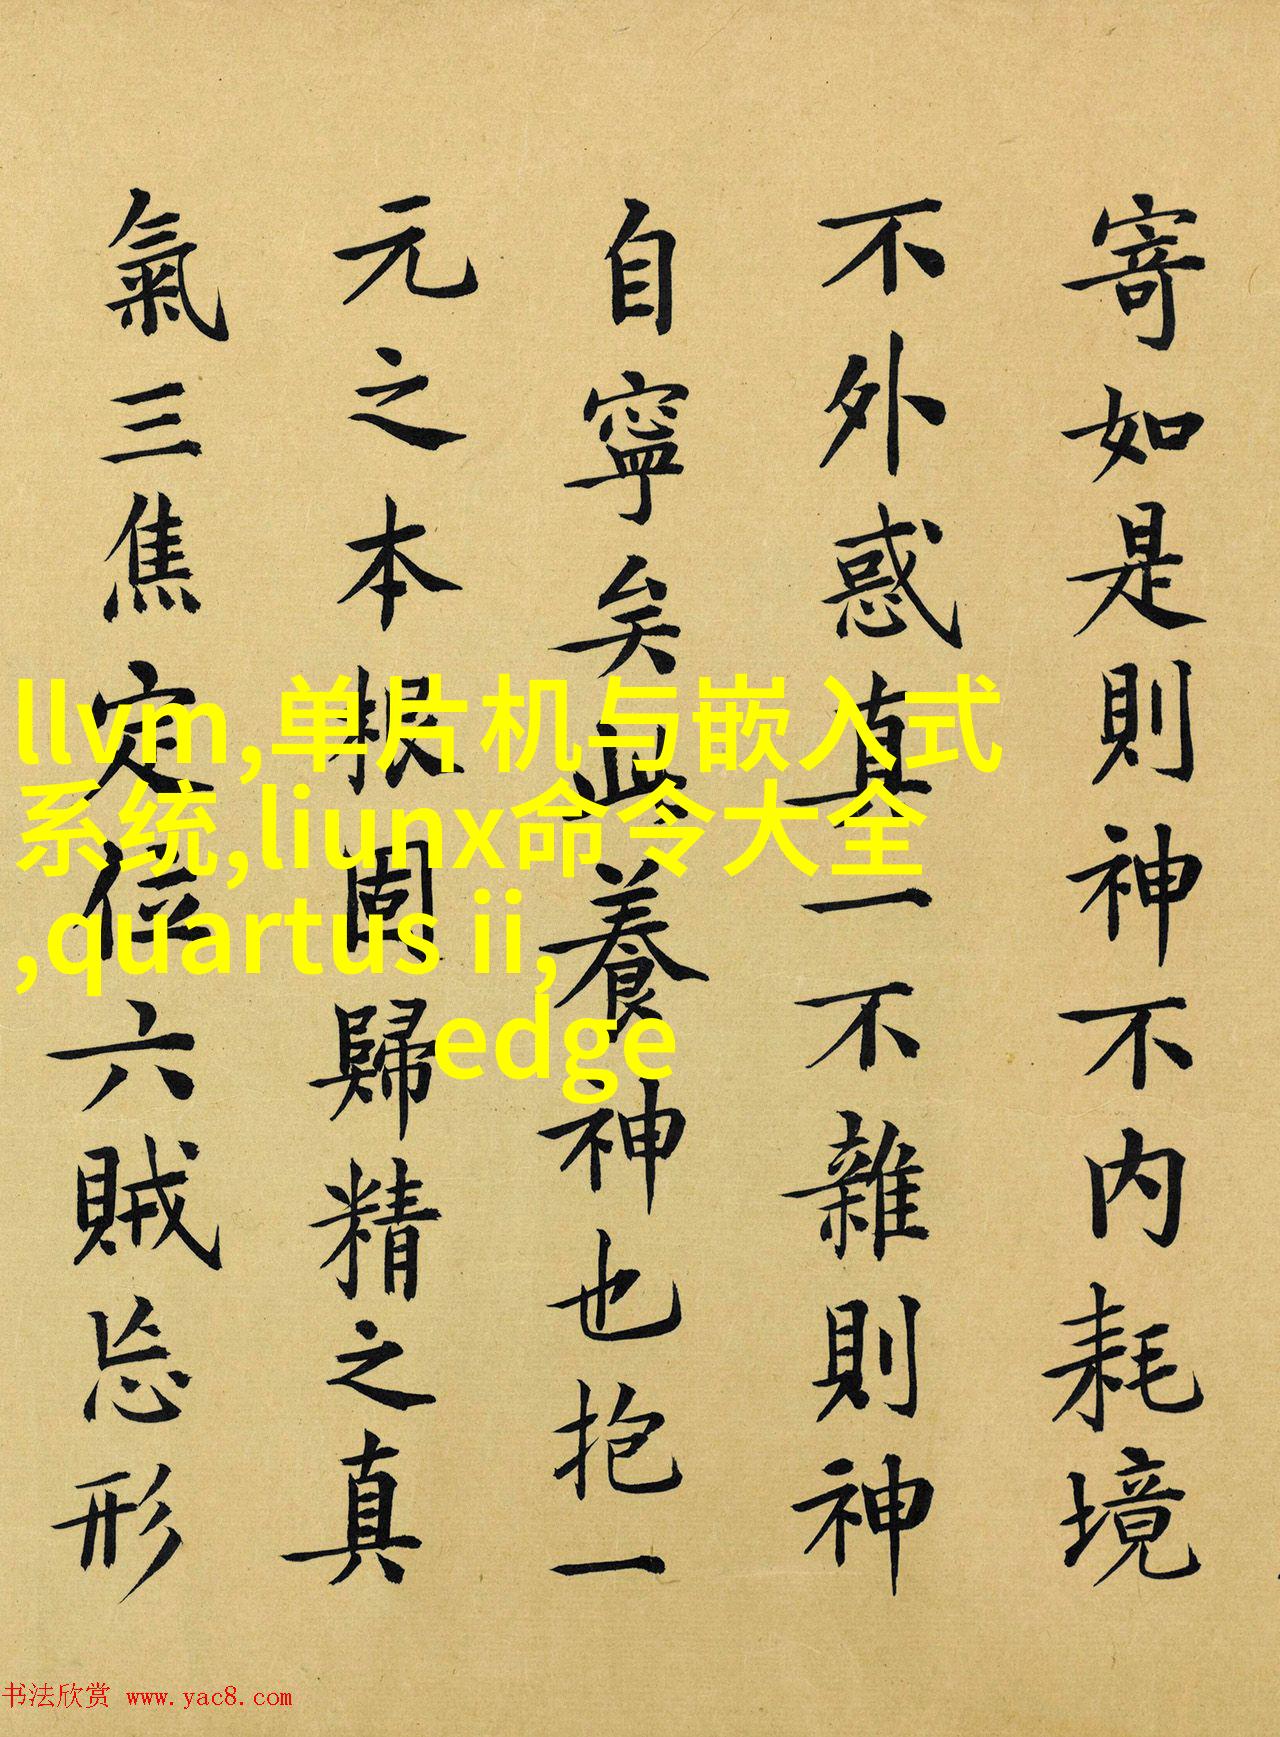 寄如是則神不内耗境
不外惑真一不雜則神
自寧矣此養神也抱一
元之本根固歸精之真
氣三焦定位六賊忘形
llvm,单片机与嵌入式
系统,liunx命令大全
,quartus ii,
edge
书法欣赏 www.yac8.com